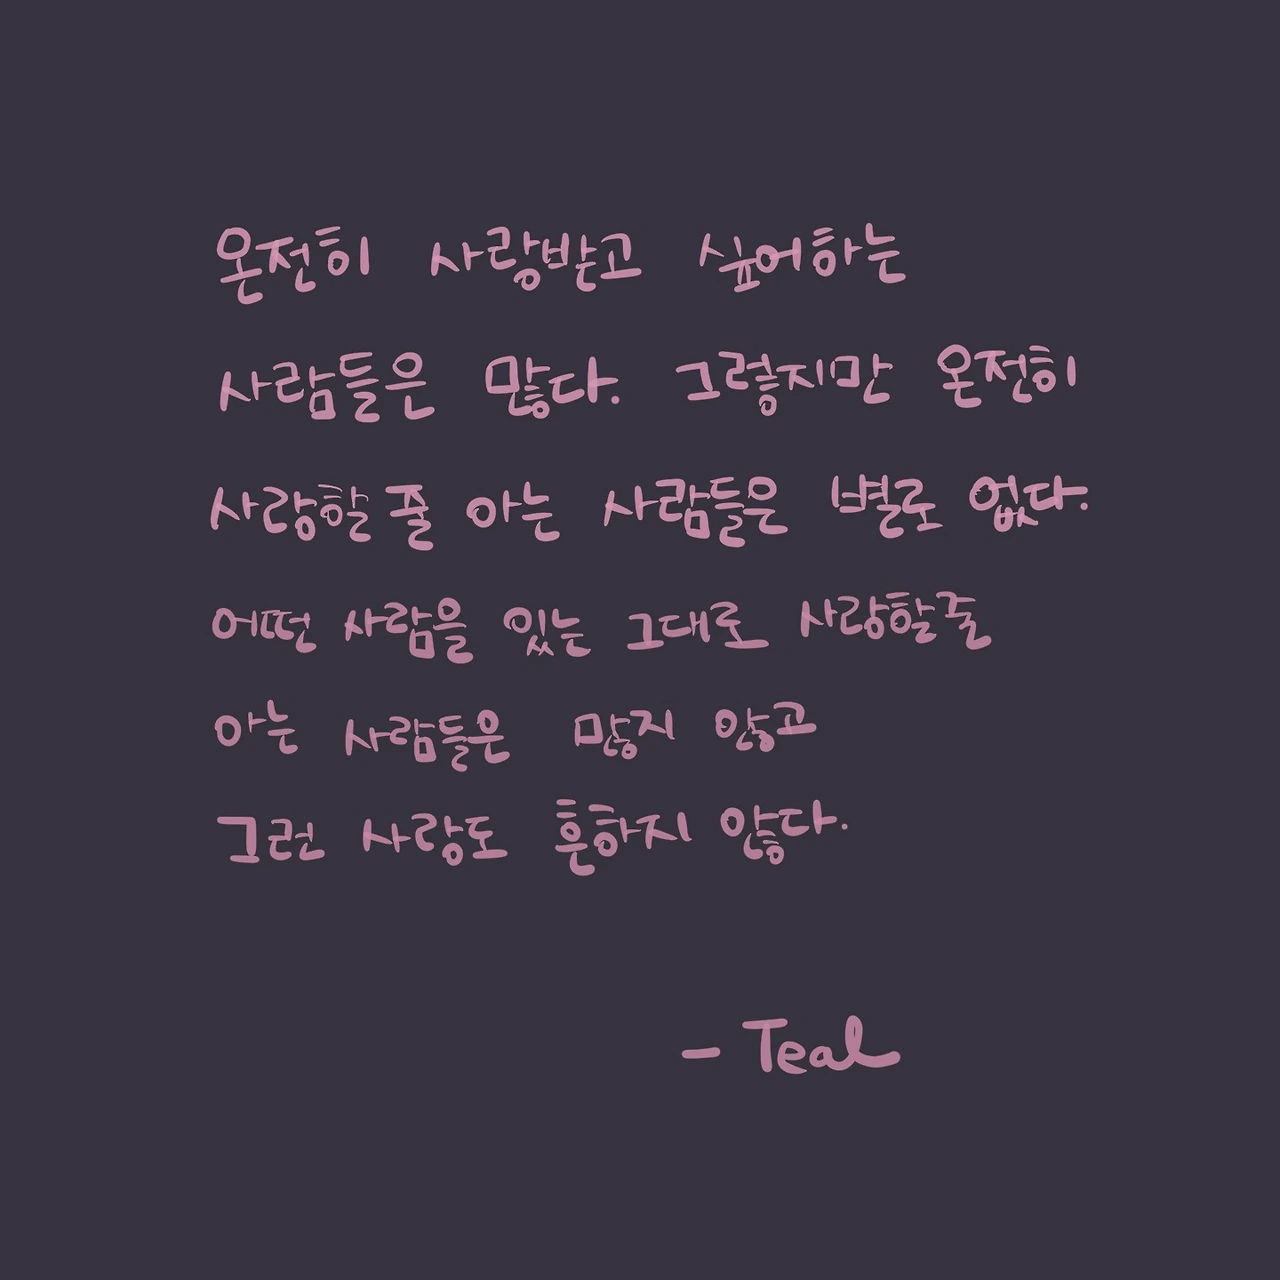 온전히 사랑받고 싶어하는
사람들은 많다. 그렇지만 온전히
사랑할 줄 아는 사람들은 별로 없다.
어떤 사람을 있는 그대로 사랑할줄
아는 사람들은 많지 않고
그런 사랑도 흔하지 않다.
- Teal